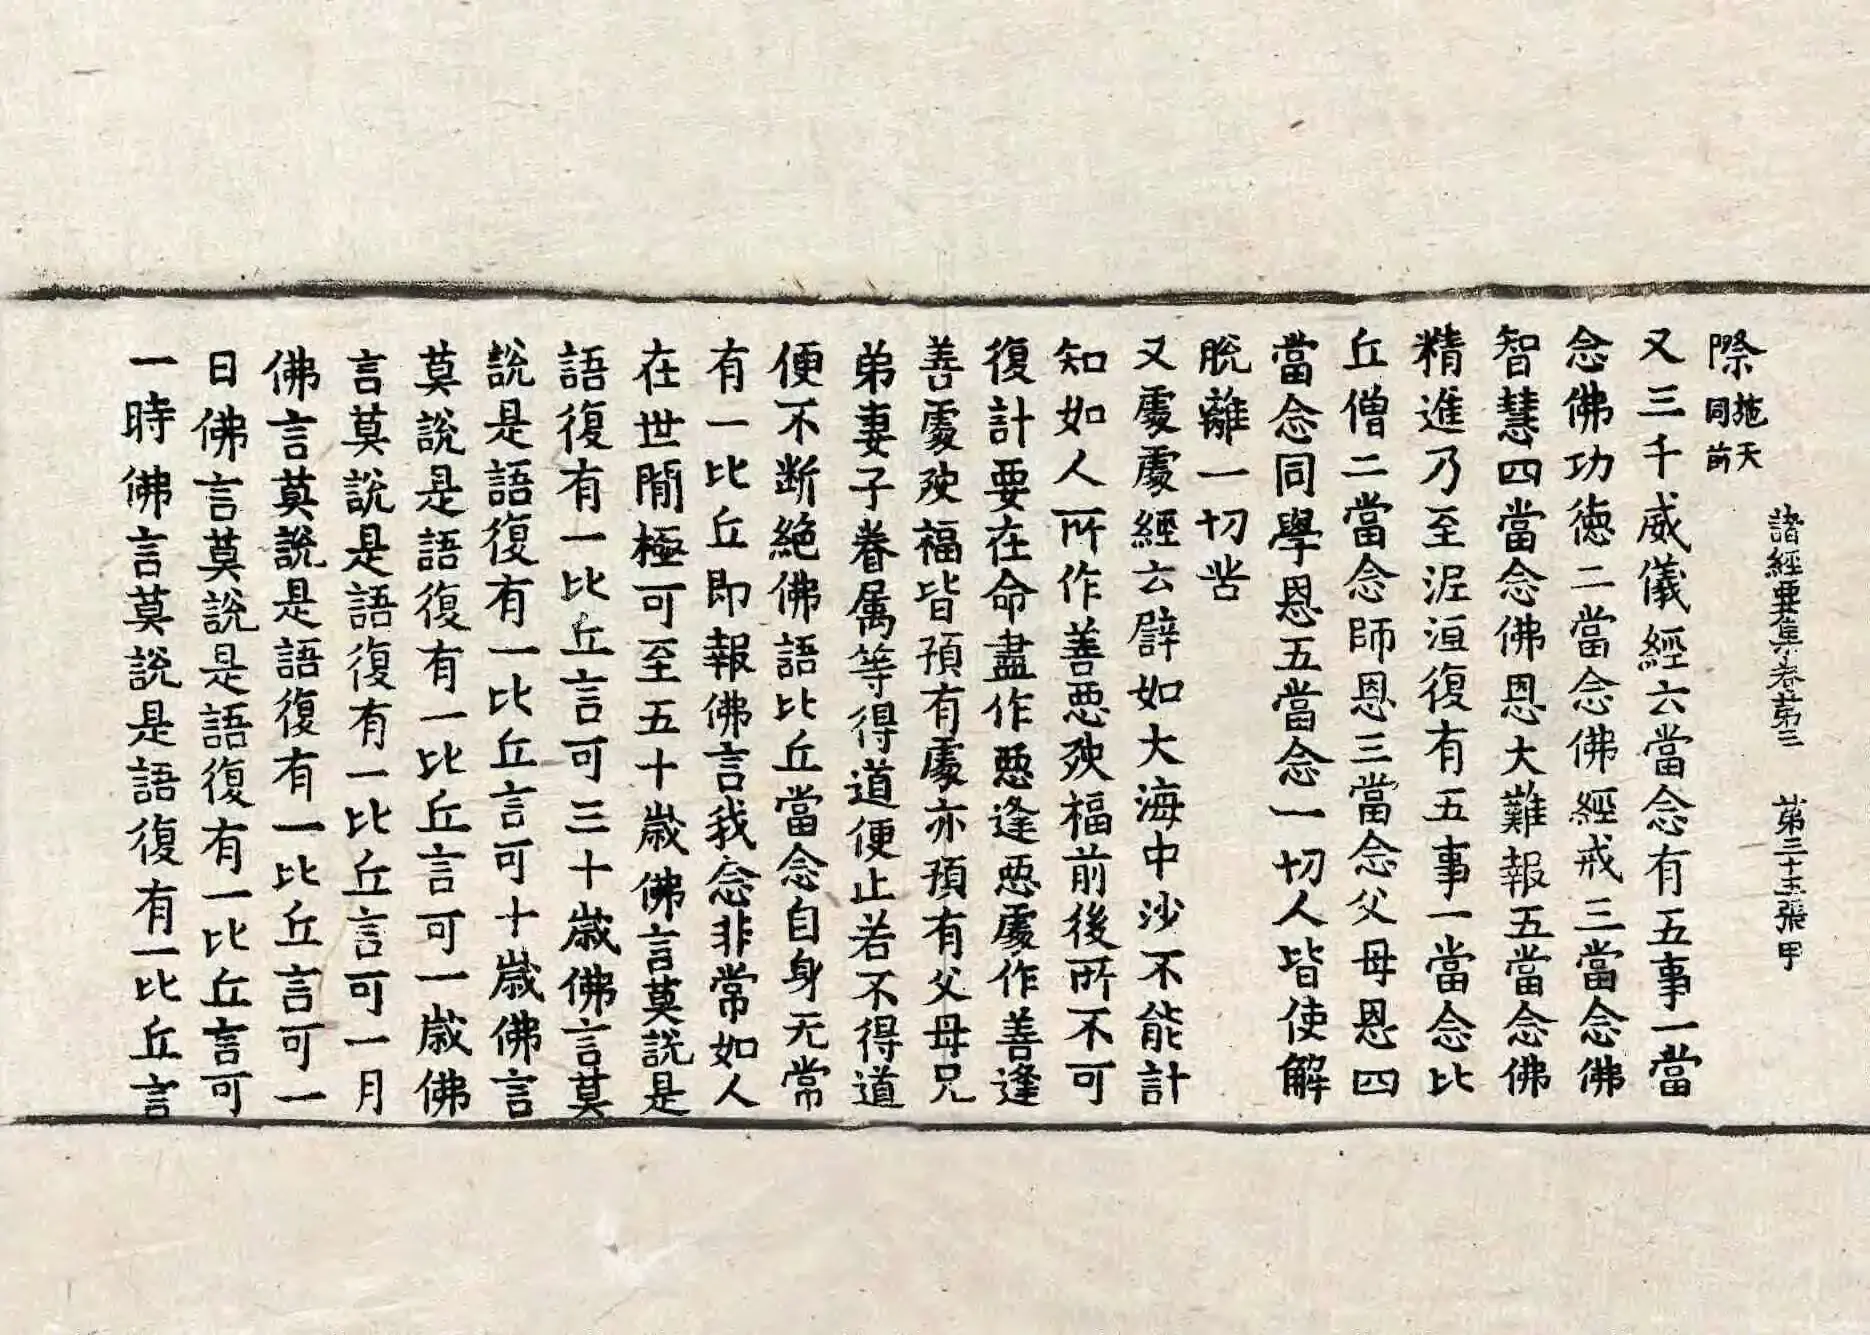 諸經要集卷第三　第三十五張　甲
際施天同前
又三千威儀經云當念有五事一當
念佛功德二當念佛經戒三當念佛
智慧四當念佛恩大難報五當念佛
精進乃至泥洹復有五事一當念比
丘僧二當念師恩三當念父母恩四
當念同學恩五當念一切人皆使解
脫離一切苦
又處處經云譬如大海中沙不能計
知如人所作善惡殃福前後所不可
復計要在命盡作惡逢惡處作善逢
善處殃福皆預有處亦預有父母兄
弟妻子眷属等得道便止若不得道
便不断絕佛語比丘當念自身无常
有一比丘即報佛言我念非常如人
在世間極可至五十歲佛言莫說是
語復有一比丘言可三十歲佛言莫
說是語復有一比丘言可十歲佛言
莫說是語復有一比丘言可一歲佛
言莫說是語復有一比丘言可一月
佛言莫說是語復有一比丘言可一
日佛言莫說是語復有一比丘言可
一時佛言莫說是語復有一比丘言